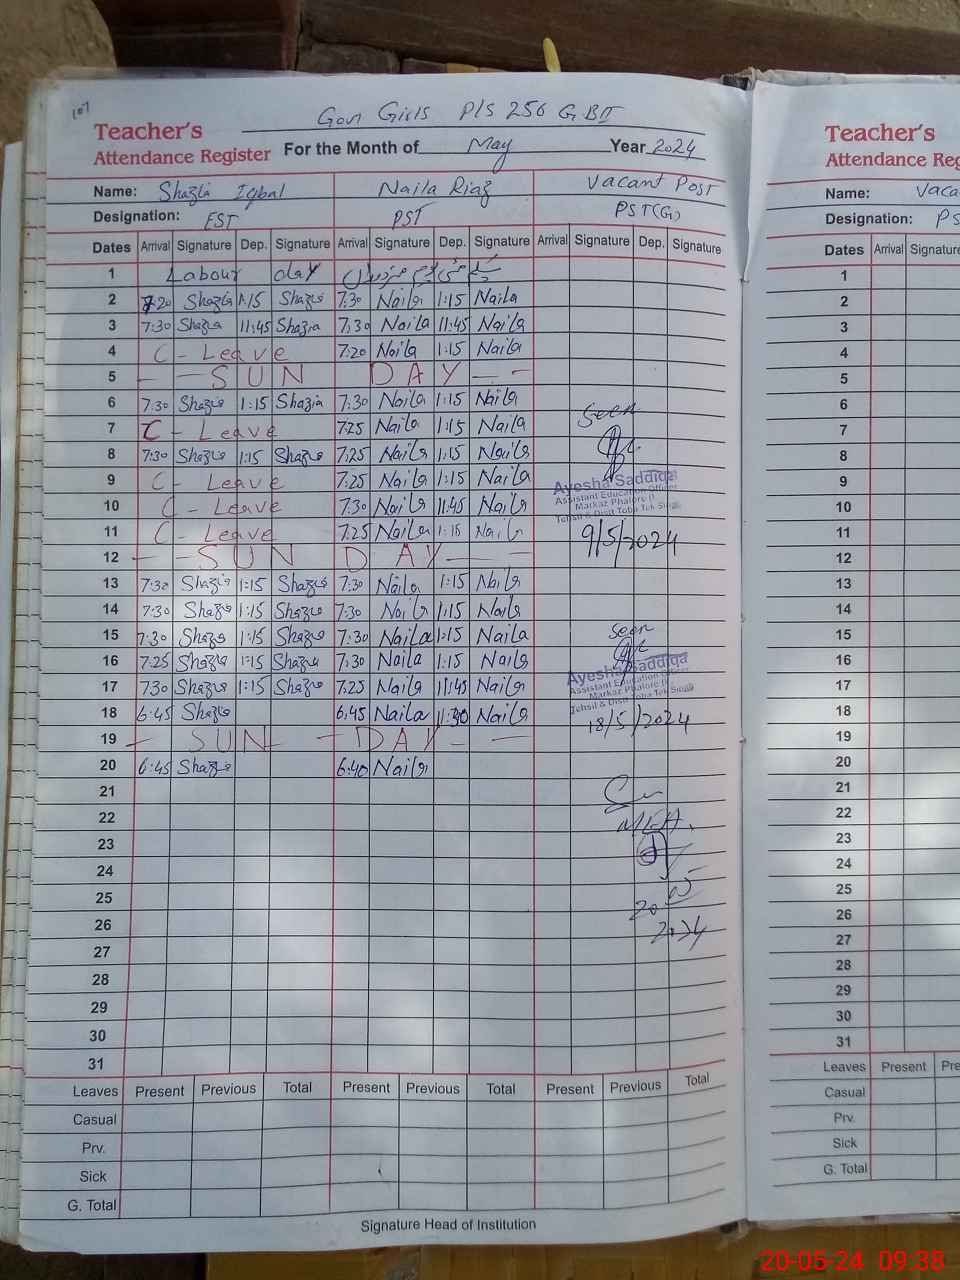 107
Govt Girls P/S 256 GB II
Teacher's
Attendance Register For the Month of May Year 2024
Name: Shazia Iqbal Naila Riaz Vacant Post
Designation: EST PST PST(G)
Dates Arrival Signature Dep. Signature Arrival Signature Dep. Signature Arrival Signature Dep. Signature
1 Labour day
2 7:20 Shazia 1:15 Shazia 7:30 Naila 1:15 Naila
3 7:30 Shazia 11:45 Shazia 7:30 Naila 11:45 Naila
4 C - Leave 7:20 Naila 1:15 Naila
5 SUN DAY
6 7:30 Shazia 1:15 Shazia 7:30 Naila 1:15 Naila
7 C - Leave 7:25 Naila 1:15 Naila
Seen
8 7:30 Shazia 1:15 Shazia 7:25 Naila 1:15 Naila
9 C - Leave 7:25 Naila 1:15 Naila
10 C - Leave 7:30 Naila 11:45 Naila
Ayesha Saddiqa
Assistant Education Officer
Markaz Phalore
Tehsil & Distt Toba Tek Singh
11 C - Leave 7:25 Naila 1:15 Naila
9/5/2024
12 SUN DAY
13 7:30 Shazia 1:15 Shazia 7:30 Naila 1:15 Naila
14 7:30 Shazia 1:15 Shazia 7:30 Naila 1:15 Naila
15 7:30 Shazia 1:15 Shazia 7:30 Naila 1:15 Naila
Seen
16 7:25 Shazia 1:15 Shazia 7:30 Naila 1:15 Naila
17 7:30 Shazia 1:15 Shazia 7:25 Naila 11:45 Naila
Ayesha Saddiqa
Assistant Education Officer
Markaz Phalore
Tehsil & Distt Toba Tek Singh
18 6:45 Shazia 6:45 Naila 11:30 Naila
18/5/2024
19 SUN DAY
20 6:45 Shazia 6:40 Naila
21
22
MEA.
23
24
25
26
20 05
2024
27
28
29
30
31
Leaves Present Previous Total Present Previous Total Present Previous Total
Casual
Prv.
Sick
G. Total
Signature Head of Institution
Teacher's
Attendance Reg
Name: Vaca
Designation: PS
Dates Arrival Signature
1
2
3
4
5
6
7
8
9
10
11
12
13
14
15
16
17
18
19
20
21
22
23
24
25
26
27
28
29
30
31
Leaves Present Pre
Casual
Prv.
Sick
G. Total
20-05-24 09:38